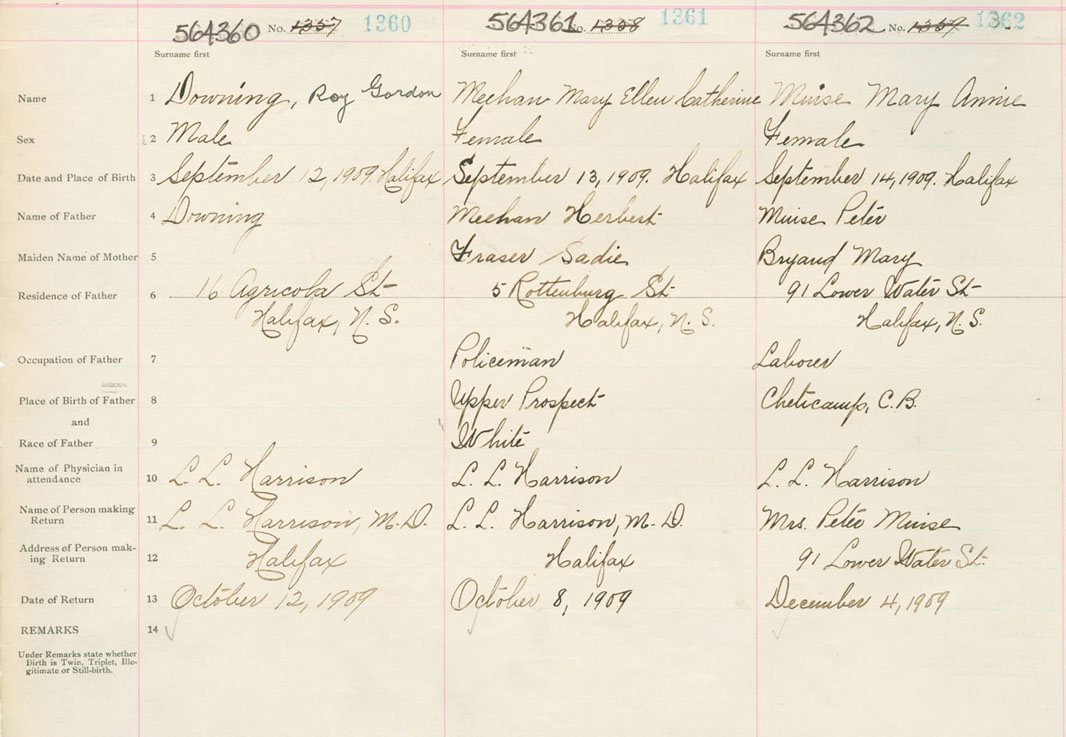 564360 No. 1357 1360 564361 No. 1358 1361 564362 No. 1359 1362
Surname first Surname first Surname first
Name 1 Downing, Roy Gordon Meehan Mary Ellen Catherine Muise Mary Annie
Sex 2 Male Female Female
Date and Place of Birth 3 September 12, 1909. Halifax September 13, 1909. Halifax September 14, 1909. Halifax
Name of Father 4 Downing Meehan Herbert Muise Peter
Maiden Name of Mother 5 Fraser Sadie Bryand Mary
Residence of Father 6 16 Agricola St 5 Rottenburg St 91 Lower Water St
Halifax, N. S. Halifax, N. S. Halifax, N. S.
Occupation of Father 7 Policeman Laborer
Place of Birth of Father 8 Upper Prospect Cheticamp, C. B.
and
Race of Father 9 White
Name of Physician in
attendance 10 L. L. Harrison L. L. Harrison L. L. Harrison
Name of Person making
Return 11 L. L. Harrison, M. D. L. L. Harrison, M. D. Mrs. Peter Muise
Address of Person mak-
ing Return 12 Halifax Halifax 91 Lower Water St.
Date of Return 13 October 12, 1909 October 8, 1909 December 4, 1909
REMARKS 14
Under Remarks state whether
Birth is Twin, Triplet, Ille-
gitimate or Still-birth.